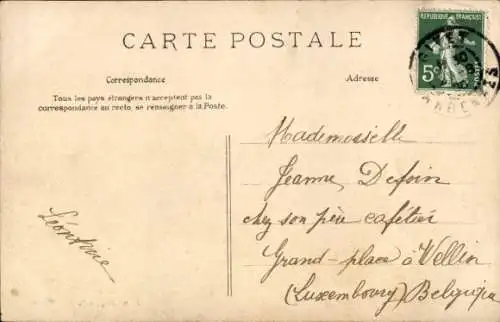 REPUBLIQUE FRANÇAISE
5c
GIVET
ARDENNES
CARTE POSTALE
Correspondance
Adresse
Tous les pays étrangers n'acceptent pas la
correspondance au recto, se renseigner à la Poste.
Mademoiselle
Jeanne Defoin
chez son père cafétier
Grand-place à Wellin
(Luxembourg) Belgique
Léontine